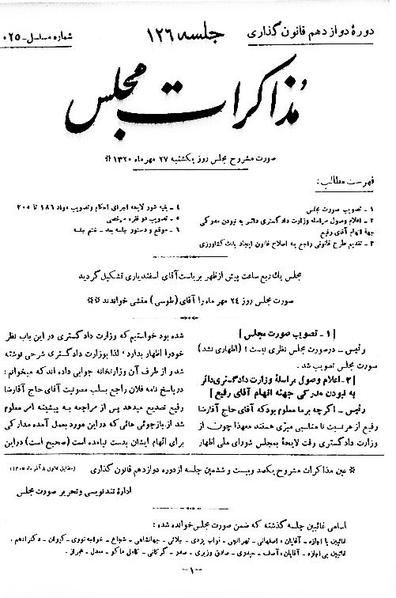 دورهٔ دوازدهم قانون گذاری
جلسه ۱۲۶
شماره مسلسل - ۰۲۵
مذاکرات مجلس
صورت مشروح مجلس روز یکشنبه ۲۷ مهر ماه ۱۳۲۰ ※
فهرست مطالب:
۱ - تصویب صورت مجلس
۲ - اعلام وصول مراسله وزارت دادگستری دائر به نبودن مدرکی
جهة اتهام آقای رفیع
۳ - تقدیم طرح قانونی راجع به اصلاح قانون ایجاد بانک کشاورزی
۴ - بقیه شور لایحه اجرای احکام و تصویب مواد ۱۸۶ تا ۲۰۵
۵ - تصویب دو فقره مرخصی
۶ - موقع و دستور جلسه بعد - ختم جلسه
مجلس یک ربع ساعت پیش از ظهر بریاست آقای اسفندیاری تشکیل گردید
صورت مجلس روز ۲۴ مهر ماه را آقای (طوسی) منشی خواندند ※※
[ ۱ - تصویب صورت مجلس ]
رئیس - در صورت مجلس نظری نیست؟ (اظهاری نشد)
صورت مجلس تصویب شد.
[ ۲ - اعلام وصول مراسلهٔ وزارت دادگستری دائر
به نبودن مدرکی جهته اتهام آقای رفیع ]
رئیس - اگرچه بر ما معلوم بود که آقای حاج آقارضا
رفیع از هر نسبت نامناسبی مبرّی هستند معهذا چون از
وزارت دادگستری وقت لایحهٔ بمجلس شورای ملی اظهار
شده بود خواستیم که وزارت دادگستری در این باب نظر
خود را اظهار بدارد، لذا بوزارت دادگستری شرحی نوشته
شد و از طرف آن وزارتخانه جوابی داده اند که میخوانم:
در پاسخ نامه فلان راجع بسلب مصونیت آقای حاج آقارضا
رفیع تصدیع میدهد پس از مراجعه به پیشینه امر معلوم
شد از بازجوئی هائی که در این مورد بعمل آمده مدارکی
برای اتهام ایشان بدست نیامده است (صحیح است) در این
※ عین مذاکرات مشروح یکصد و بیست و ششمین جلسه از دوره دوازدهم قانون گذاری
اداره تندنویسی و تحریر صورت مجلس
※※ اسامی غائبین جلسه گذشته که ضمن صورت مجلس خوانده شده:
غائبین با اجازه - آقایان: اصفهانی - تهرانچی - نواب یزدی - بلائی - جهانشاهی - شجاع - خواجه نوری - کیوان - دکتر ادهم.
غائبین بی اجازه - آقایان: آصف - حیدری - صادق وزیری - صدر - گرگانی - کامل ماکو - معدل -
- ۱ -